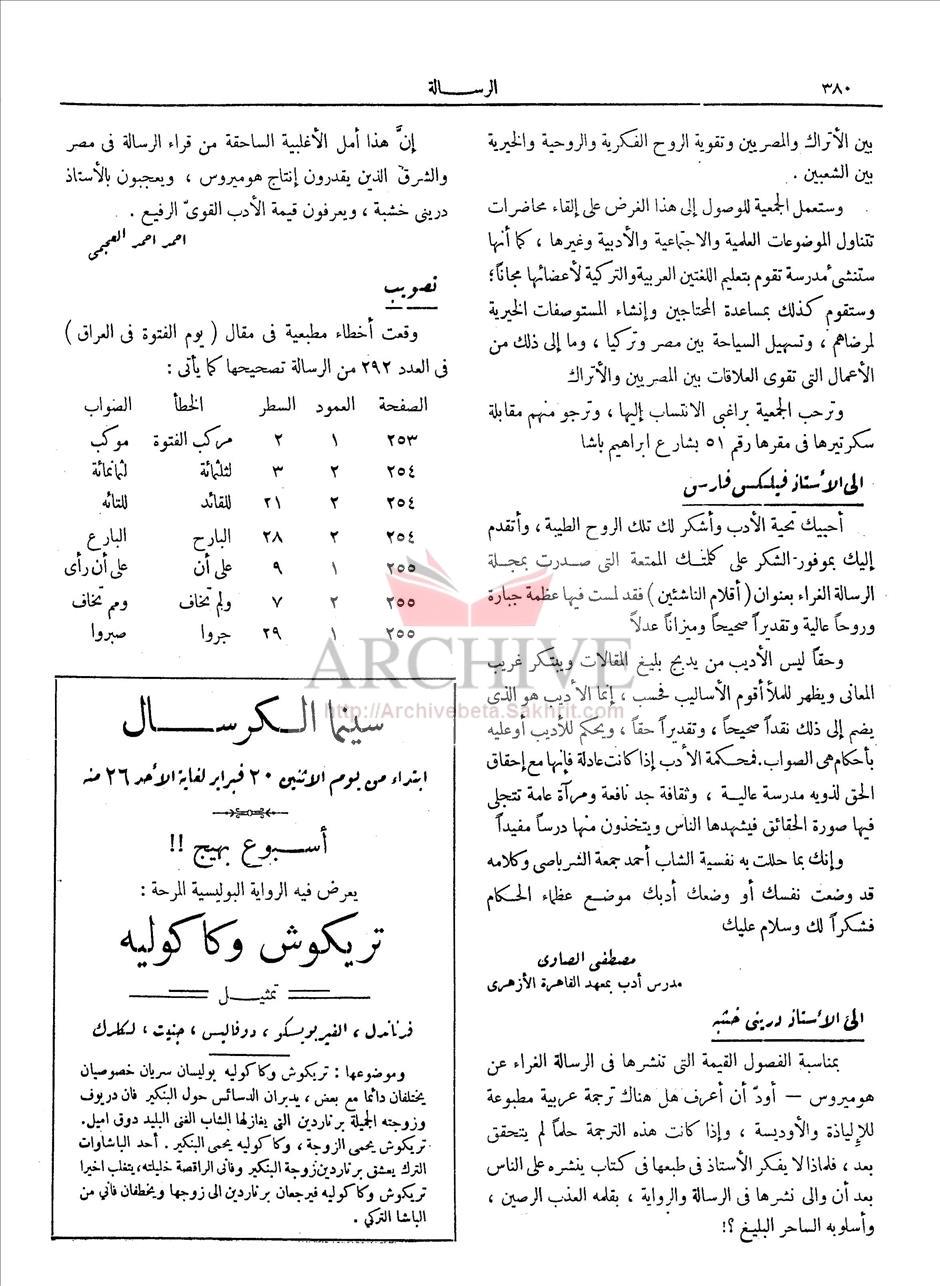 ٣٨٠
الرسالة
بين الأتراك والمصريين وتقوية الروح الفكرية والروحية والخيرية
بين الشعبين .
وستعمل الجمعية للوصول إلى هذا الغرض على إلقاء محاضرات
تتناول الموضوعات العلمية والاجتماعية والأدبية وغيرها ، كما أنها
ستنشئ مدرسة تقوم بتعليم اللغتين العربية والتركية لأعضائها مجاناً ؛
وستقوم كذلك بمساعدة المحتاجين وإنشاء المستوصفات الخيرية
لمرضاهم ، وتسهيل السياحة بين مصر وتركيا ، وما إلى ذلك من
الأعمال التى تقوى العلاقات بين المصريين والأتراك
وترحب الجمعية براغبى الانتساب إليها ، وترجو منهم مقابلة
سكرتيرها فى مقرها رقم ٥١ بشارع ابراهيم باشا
الى الأستاذ فيلكس فارس
أحييك تحية الأدب وأشكر لك تلك الروح الطيبة ، وأتقدم
إليك بموفور الشكر على كلمتك الممتعة التى صدرت بمجلة
الرسالة الغراء بعنوان ( أقلام الناشئين ) فقد لمست فيها عظمة جبارة
وروحاً عالية وتقديراً صحيحاً وميزاناً عدلاً
وحقاً ليس الأديب من يدبج بليغ المقالات ويبتكر غريب
المعانى ويظهر للملأ أقوم الأساليب فحسب ، إنما الأديب هو الذى
يضم إلى ذلك نقداً صحيحاً ، وتقديراً حقاً ، ويحكم للأديب أو عليه
بأحكام هى الصواب . فمحكمة الأدب إذا كانت عادلة فإنها مع إحقاق
الحق لذويه مدرسة عالية ، وثقافة جد نافعة ومرآة عامة تتجلى
فيها صورة الحقائق فيشهدها الناس ويتخذون منها درساً مفيداً
وإنك بما حللت به نفسية الشاب أحمد جمعة الشرباصى وكلامه
قد وضعت نفسك أو وضعك أدبك موضع عظماء الحكام
فشكراً لك وسلام عليك
مصطفى الصاوى
مدرس أدب بمعهد القاهرة الأزهرى
الى الأستاذ درينى خشبه
بمناسبة الفصول القيمة التى تنشرها فى الرسالة الغراء عن
هوميروس — أودّ أن أعرف هل هناك ترجمة عربية مطبوعة
للإلياذة والأوديسة ، وإذا كانت هذه الترجمة حلماً لم يتحقق
بعد ، فلماذا لا يفكر الأستاذ فى طبعها فى كتاب ينشره على الناس
بعد أن والى نشرها فى الرسالة والرواية ، بقلمه العذب الرصين ،
وأسلوبه الساحر البليغ ؟!
إنَّ هذا أمل الأغلبية الساحقة من قراء الرسالة فى مصر
والشرق الذين يقدرون إنتاج هوميروس ، ويعجبون بالأستاذ
درينى خشبة ، ويعرفون قيمة الأدب القوىّ الرفيع .
احمد احمد العجمى
تصويب
وقعت أخطاء مطبعية فى مقال ( يوم الفتوة فى العراق )
فى العدد ٢٩٢ من الرسالة تصحيحها كما يأتى :
الصفحة العمود السطر الخطأ الصواب
٢٥٣ ١ ٢ مركب الفتوة موكب
٢٥٤ ٢ ٣ لثلثمائة لثمانمائة
٢٥٤ ٢ ٢١ للقائد للتائه
٢٥٤ ٢ ٢٨ البارح البارع
٢٥٥ ١ ٩ على أن على أن رأى
٢٥٥ ٢ ٧ ولم تخاف ومم تخاف
٢٥٥ ١ ٢٩ جروا صبروا
سينما الكرسال
ابتداء من يوم الاثنين ٢٠ فبراير لغاية الأحد ٢٦ منه
أسبوع بهيج !!
يعرض فيه الرواية البوليسية المرحة :
تريكوش وكاكوليه
تمثيل
فرناندل ، الفير بوبسكو ، دوفاليس ، جنيت ، لكلرك
وموضوعها : تريكوش وكاكوليه بوليسان سريان خصوصيان
يختلفان دائما مع بعض ، يدبران الدسائس حول البنكير فان دريوف
وزوجته الجميلة برناردين التى يغازلها الشاب الغنى البليد دوق اميل .
تريكوش يحمى الزوجة ، وكاكوليه يحمى البنكير . أحد الباشاوات
الترك يعشق برناردين زوجة البنكير وفانى الراقصة خليلته ، يتغلب اخيرا
تريكوش وكاكوليه فيرجعان برناردين الى زوجها ويخطفان فاني من
الباشا التركي .
ARCHIVE
http://Archivebeta.Sakhrit.com